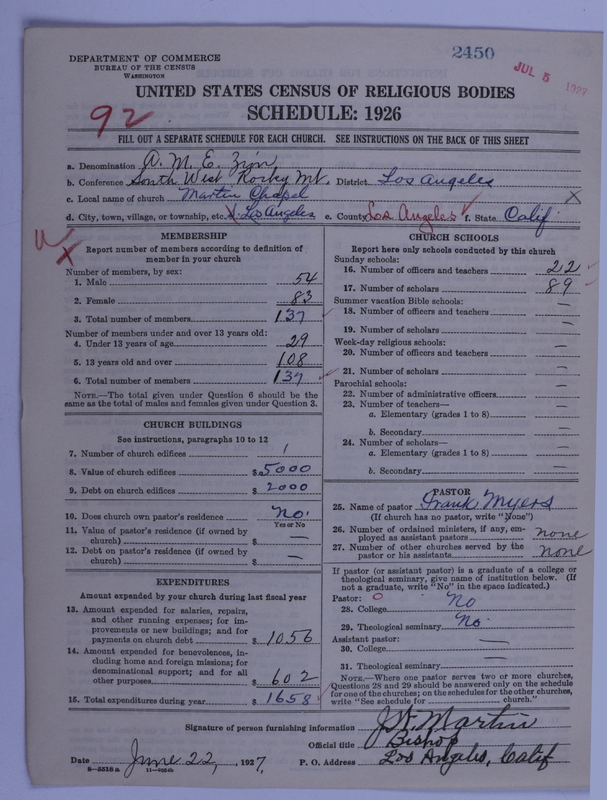 2450
JUL 5 1927
DEPARTMENT OF COMMERCE
BUREAU OF THE CENSUS
WASHINGTON
UNITED STATES CENSUS OF RELIGIOUS BODIES
SCHEDULE: 1926
92
FILL OUT A SEPARATE SCHEDULE FOR EACH CHURCH. SEE INSTRUCTIONS ON THE BACK OF THIS SHEET
a. Denomination A. M. E. Zion
b. Conference South West Rocky Mt. District Los Angeles
c. Local name of church Martin Chapel X
d. City, town, village, or township, etc. Los Angeles e. County Los Angeles f. State Calif.
MEMBERSHIP
Report number of members according to definition of member in your church
Number of members, by sex:
1. Male 54
2. Female 83
3. Total number of members 137
Number of members under and over 13 years old:
4. Under 13 years of age 29
5. 13 years old and over 108
6. Total number of members 137
NOTE.—The total given under Question 6 should be the same as the total of males and females given under Question 3.
CHURCH BUILDINGS
See instructions, paragraphs 10 to 12
7. Number of church edifices 1
8. Value of church edifices $5000
9. Debt on church edifices $2000
10. Does church own pastor's residence No.
Yes or No
11. Value of pastor's residence (if owned by church) $ —
12. Debt on pastor's residence (if owned by church) $ —
EXPENDITURES
Amount expended by your church during last fiscal year
13. Amount expended for salaries, repairs, and other running expenses; for improvements or new buildings; and for payments on church debt $ 1056
14. Amount expended for benevolences, including home and foreign missions; for denominational support; and for all other purposes $ 602
15. Total expenditures during year $ 1658
CHURCH SCHOOLS
Report here only schools conducted by this church
Sunday schools:
16. Number of officers and teachers 22
17. Number of scholars 89
Summer vacation Bible schools:
18. Number of officers and teachers —
19. Number of scholars —
Week-day religious schools:
20. Number of officers and teachers —
21. Number of scholars —
Parochial schools:
22. Number of administrative officers —
23. Number of teachers—
a. Elementary (grades 1 to 8) —
b. Secondary —
24. Number of scholars—
a. Elementary (grades 1 to 8) —
b. Secondary —
PASTOR
25. Name of pastor Frank Myers
(If church has no pastor, write "None")
26. Number of ordained ministers, if any, employed as assistant pastors none
27. Number of other churches served by the pastor or his assistants none
If pastor (or assistant pastor) is a graduate of a college or theological seminary, give name of institution below. (If not a graduate, write "No" in the space indicated.)
Pastor: 0
28. College No
29. Theological seminary No.
Assistant pastor:
30. College —
31. Theological seminary —
NOTE.—Where one pastor serves two or more churches, Questions 28 and 29 should be answered only on the schedule for one of the churches; on the schedules for the other churches, write "See schedule for church."
Signature of person furnishing information J. W. Martin
Official title Bishop
Date June 22, 1927. P. O. Address Los Angeles, Calif
8—5318 a